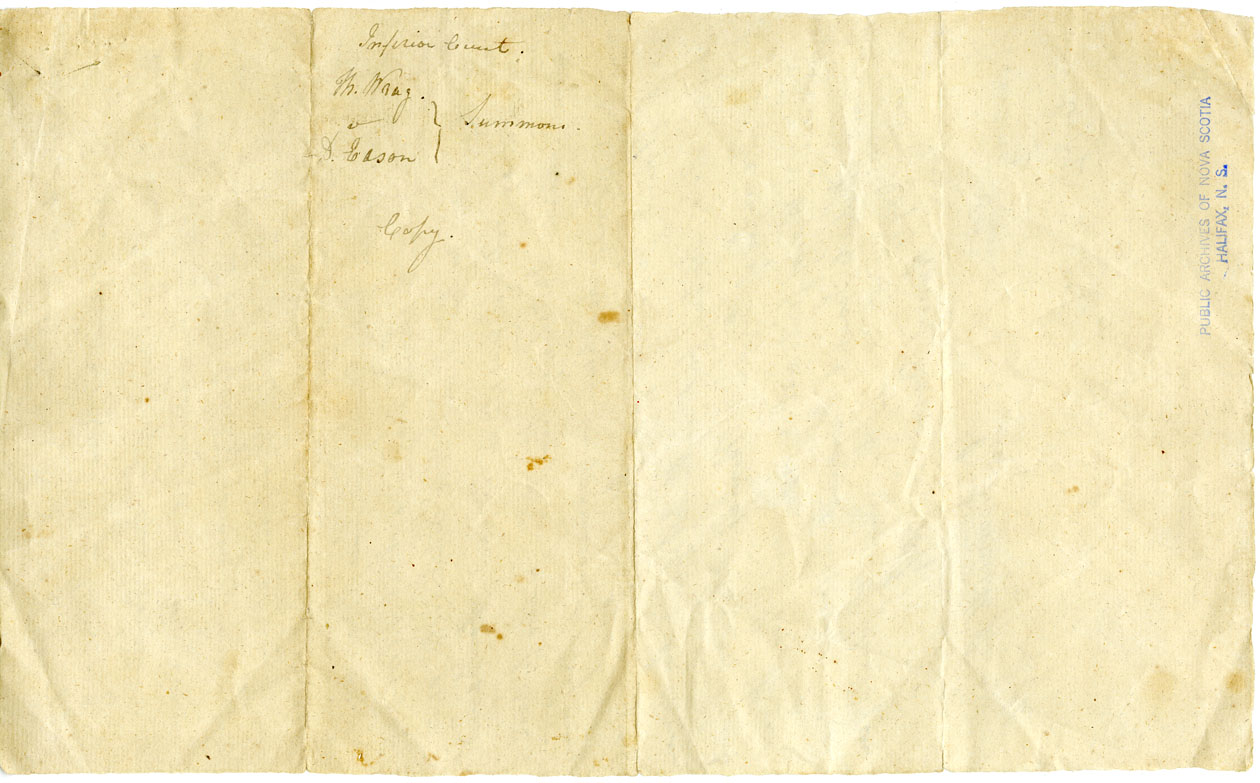 Inferior Court.
Th. Wrag.
v
D. Eason
Summons.
Copy.
PUBLIC ARCHIVES OF NOVA SCOTIA
HALIFAX, N. S.